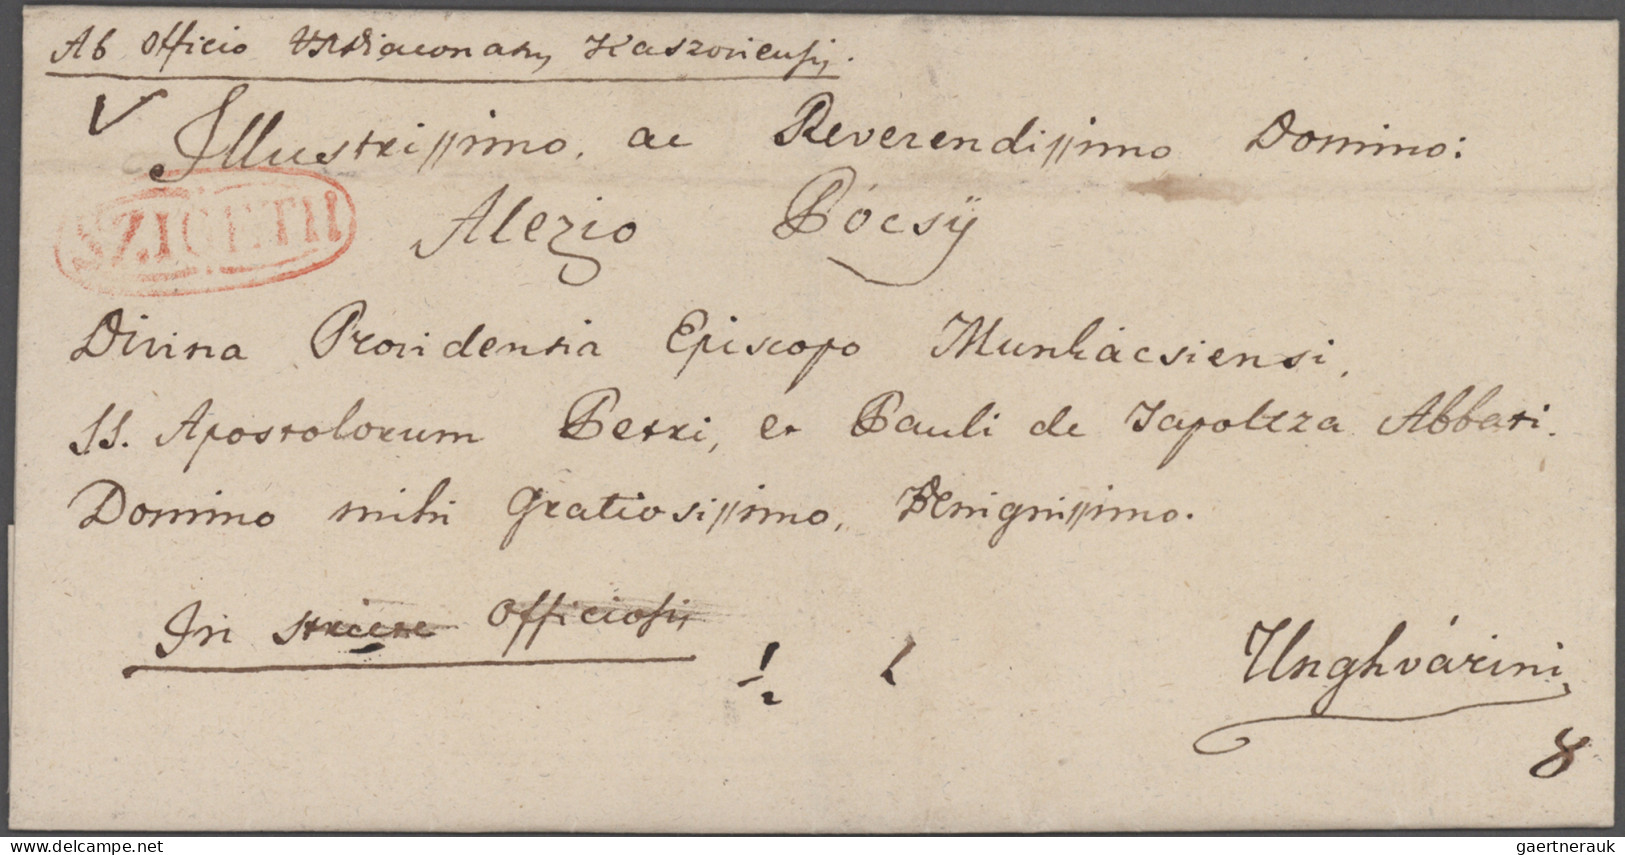 Ab Officio VADiaconatus Kaszoniensis.
Illustrissimo. ac Reverendissimo Domino:
SZIGETH
Alexio Pócsÿ
Divina Providentia Episcopo Munkácsiensi,
SS. Apostolorum Petri, et Pauli de Tapoltza Abbati.
Domino mihi Gratiosissimo, Benignissimo.
In stricte Officiosis
1/2
Unghvárini,
8
gaertnerauk